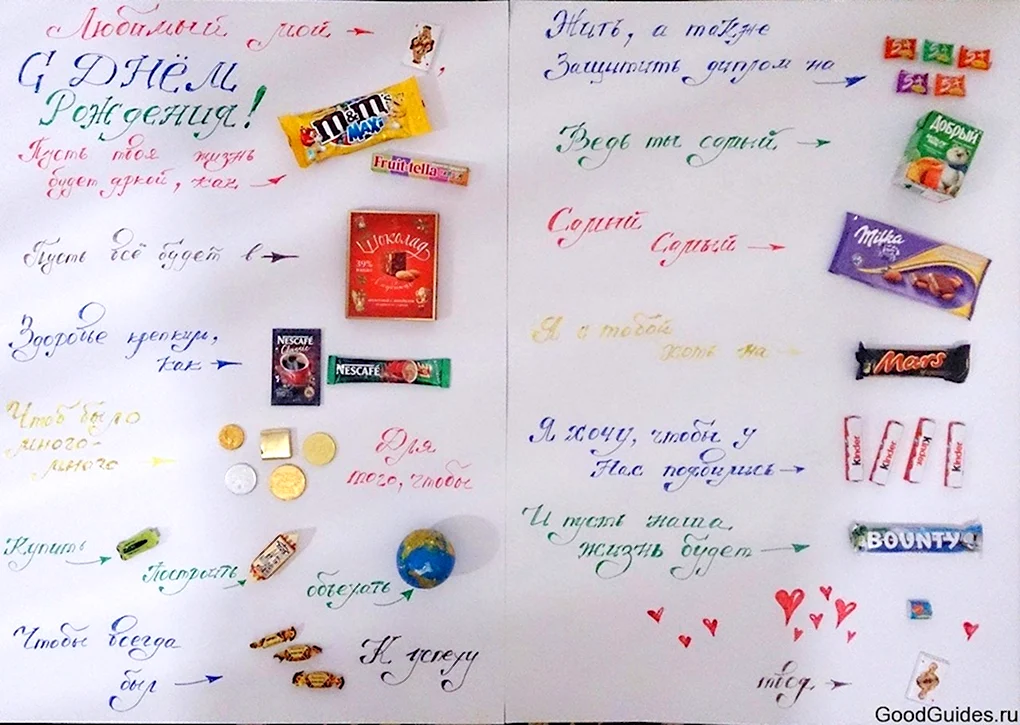 Любимый мой
С ДНЁМ
Рождения!
M&M's
MAXI
Fruittella
Пусть твоя жизнь
будет яркой, как
Шоколад
Пусть всё будет в
Здоровье крепким,
как
NESCAFÉ
Classic
NESCAFÉ
Чтоб было
много-
много
Для
того, чтобы
Купить
Построить
объехать
Чтобы всегда
был
К успеху
Жить, а также
Защитить диплом на
5+
5+
5+
5+
5+
Ведь ты самый
Добрый
Самый
Самый
Milka
Я с тобой
хоть на
Mars
Я хочу, чтобы у
Нас появились
Kinder
Kinder
Kinder
Kinder
И пусть наша
жизнь будет
BOUNTY
твоя
GoodGuides.ru